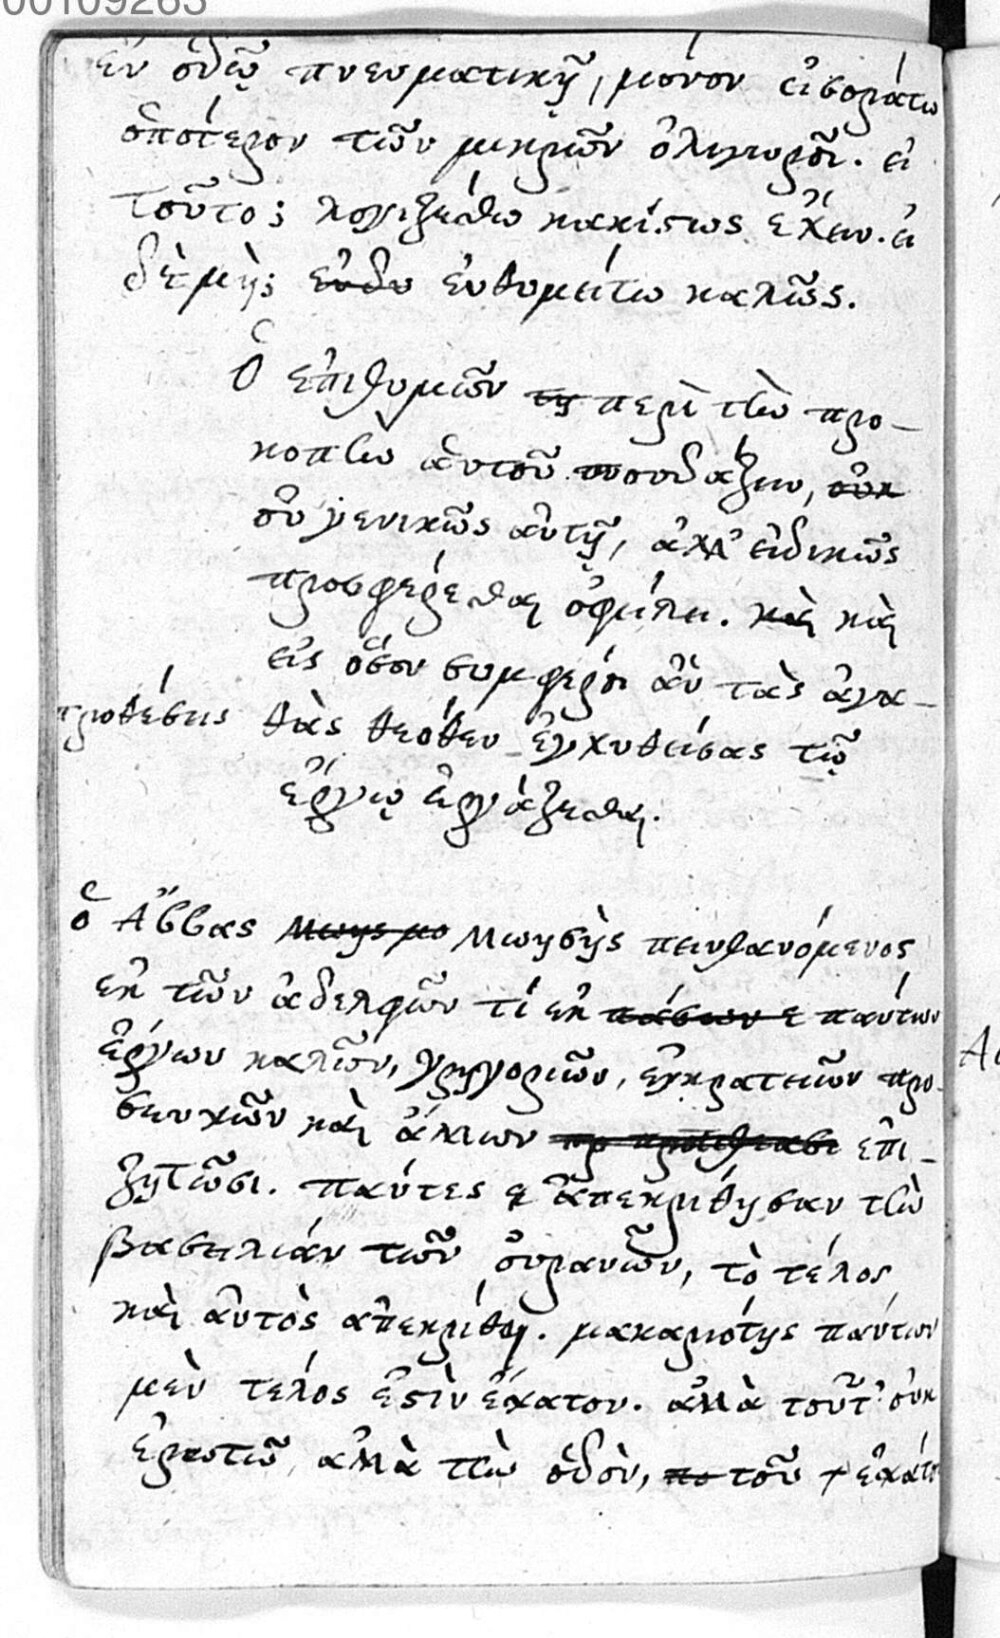 00109263
ἐν ὁδῷ πνευματικῇ, μόνον εἰσοράτω
ὁπότερον τῶν μικρῶν ὀλιγωρεῖ. εἰ
τοῦτο; λογιζέσθω κακίστως ἔχειν. εἰ
δὲ μὴ; ἐνδυ ἐνθυμείτω καλῶς.
Ὁ ἐπιθυμῶν της περὶ τὴν προ-
κοπὴν ἁυτοῦ σπουδάζειν, οὐκ
οὐ γενικῶς αὐτῇ, ἀλλ' εἰδικῶς
προσφέρεσθαι ὀφείλει. καὶ καὶ
εἰς ὅσον συμφέροι ἂν τὰς ἀγα-
προθέσεις θὰς θεόθεν ἐγχυθείσας τῷ
ἔργῳ ἐργάζεσθαι.
ὁ Ἄββας Μωης μο Μωησὴς πυνθανόμενος
ἐκ τῶν ἀδελφῶν τί ἐκ πάσων ε πάντων
ἔργων καλῶν, γρηγοριῶν, ἐγκρατειῶν προ-
σευχῶν καὶ ἄλλων επι-
ζητῶσι. πάντες ἀπεκρίθησαν τὴν
βασιλείαν τῶν οὐρανῶν, τὸ τέλος
καὶ αὐτὸς ἀπεκρίθη. μακαριότης πάντων
μὲν τέλος ἐστὶν ἔσχατον. ἀλλὰ τοῦτ' οὐκ
ἐρωτῶ, ἀλλὰ τὴν ὁδὸν, πο τοῦ